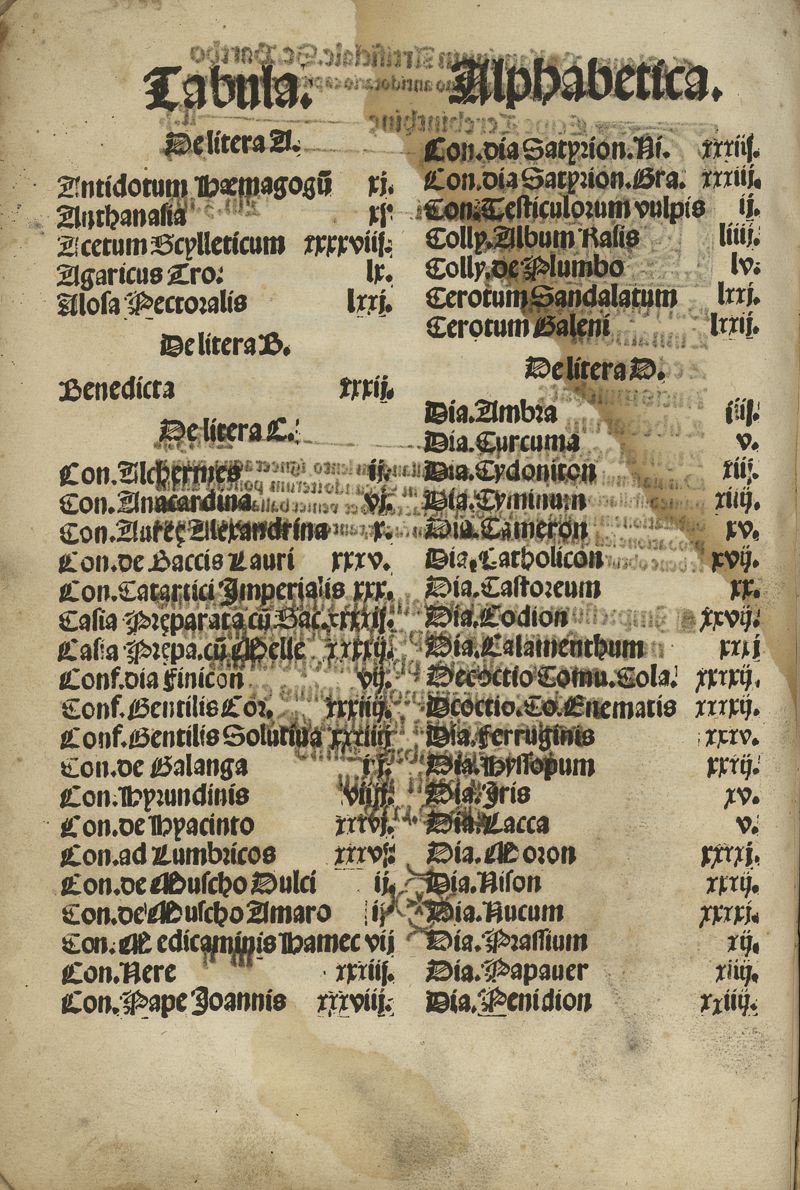 Tabula. Alphabetica.
De litera A.
Antidotum Hæmagogũ xj.
Anthanasia xj.
Acetum Scylleticum xxxxviij.
Agaricus Tro: lx.
Alosa Pectoralis lxxj.
De litera B.
Benedicta xxxij.
De litera C.
Con.Alchermes ij.
Con.Anacardina vj.
Con.Aureę Alexandrina x.
Con.de Baccis Lauri xxxv.
Con.Catartici Imperialis xxx.
Casia Pręparata cũ Sac.xxxxij.
Casia Prępa.cũ Melle xxxxij.
Conf.dia Finicon vij.
Conf.Gentilis Cor. xxxiiij.
Conf.Gentilis Solutiua xxxiiij
Con.de Galanga
Con.Hyrundinis viij.
Con.de Hyacinto xxxvj.
Con.ad Lumbricos xxxvj.
Con.de Muscho Dulci ij.
Con.de Muscho Amaro ij
Con.Medicaminis Hamec vij
Con.Nere xxxiij.
Con.Pape Joannis xxxviij.
Con.dia Satyrion.Ni. xxxiij.
Con.dia Satyrion.Gra. xxxiij.
Con.Testiculorum vulpis ij.
Colly.Album Rasis liiij.
Colly.de Plumbo lv.
Cerotum Sandalatum lxxj.
Cerotum Galeni lxxij.
De litera D.
Dia.Ambra iij.
Dia.Curcuma v.
Dia.Cydoniton xij.
Dia.Cyminum xiiij.
Dia.Cameron xv.
Dia.Catholicon xvij.
Dia.Castoreum xx.
Dia.Codion xxvij.
Dia.Calamenthum xxxj
Decoctio Comu.Cola. xxxxij.
Dcoctio.Co.Enematis xxxxij.
Dia.Ferruginis xxxv.
Dia.Hyssopum xxxij.
Dia.Iris xv.
Dia.Lacca v.
Dia.Moron xxxxj.
Dia.Nison xxxij.
Dia.Nucum xxxxj.
Dia.Prassium xij.
Dia.Papauer xiiij.
Dia.Penidion xxiiij.